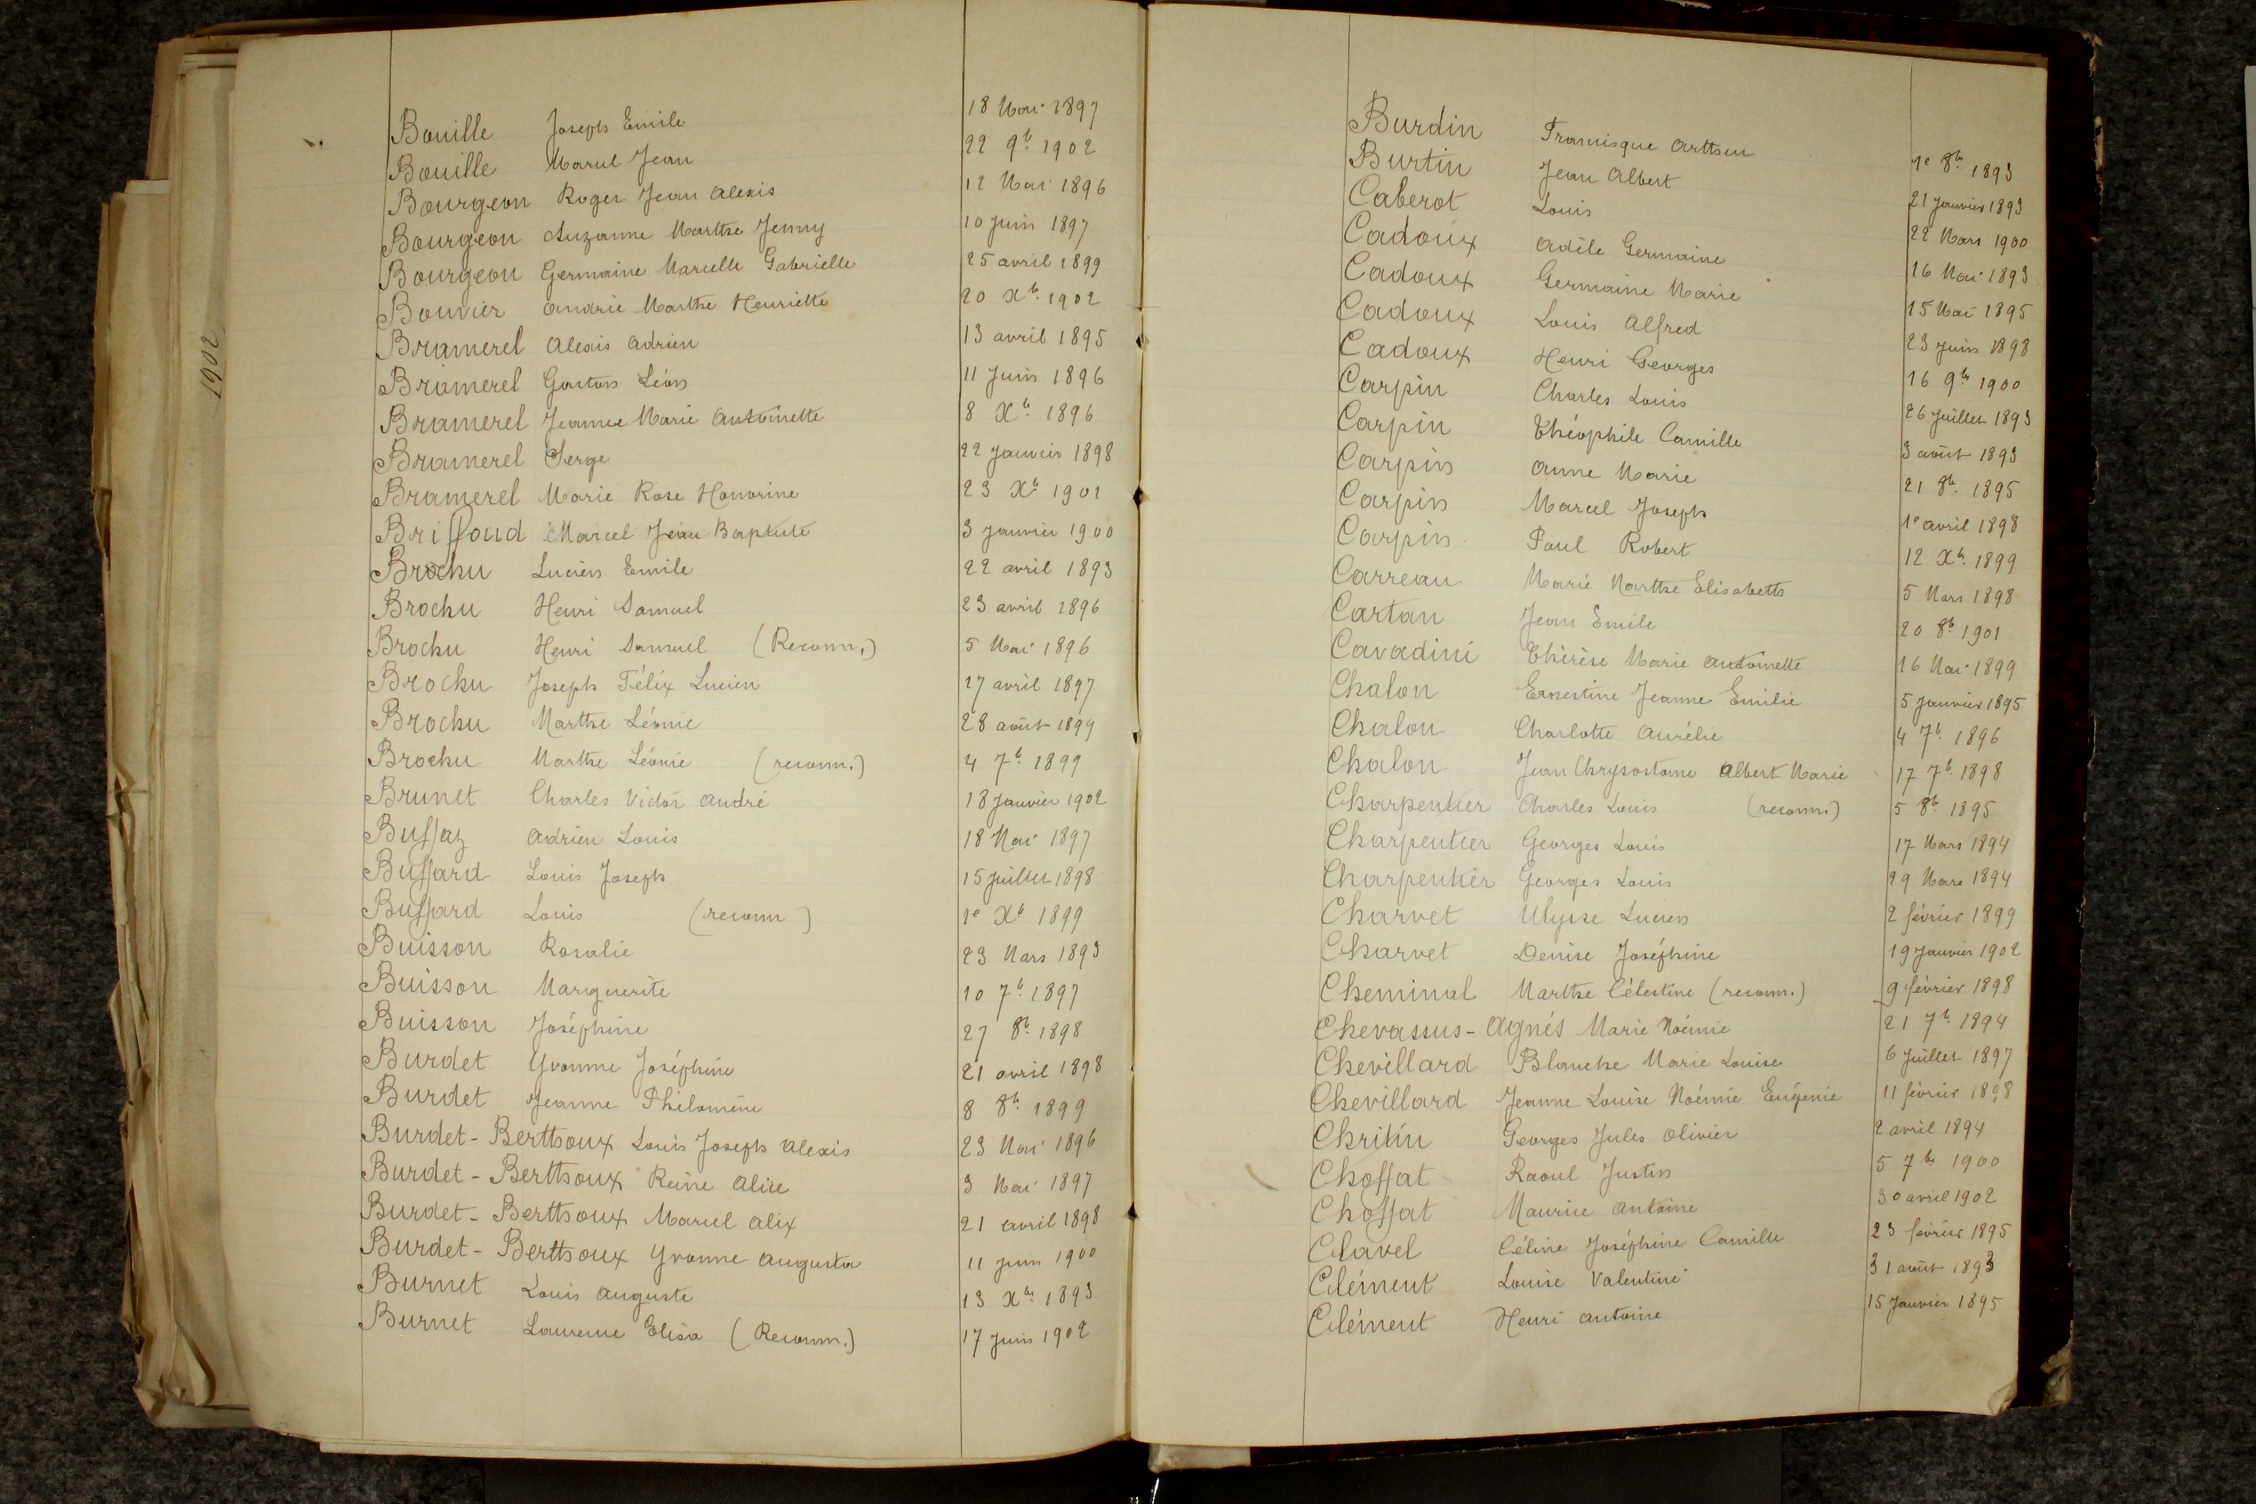 1902
Bouille Joseph Emile 18 Mai 1897
Bouille Marcel Jean 22 9b. 1902
Bourgeon Roger Jean Alexis 12 Mai 1896
Bourgeon Suzanne Marthe Jenny 10 Juin 1897
Bourgeon Germaine Marcelle Gabrielle 25 avril 1899
Bouvier Andrée Marthe Henriette 20 Xb. 1902
Bramerel Alexis Adrien 13 avril 1895
Bramerel Gaston Léon 11 Juin 1896
Bramerel Jeanne Marie Antoinette 8 Xb. 1896
Bramerel Serge 22 Janvier 1898
Bramerel Marie Rose Honorine 23 Xb 1901
Briffoud Marcel Jean Baptiste 3 Janvier 1900
Brochu Lucien Emile 22 avril 1893
Brochu Henri Samuel 23 avril 1896
Brochu Henri Samuel (Reconn.) 5 Mai 1896
Brochu Joseph Félix Lucien 27 avril 1897
Brochu Marthe Léonie 28 août 1899
Brochu Marthe Léonie (reconn.) 4 7b. 1899
Brunet Charles Victor André 18 Janvier 1902
Buffaz Adrien Louis 18 Mai 1897
Buffard Louis Joseph 15 Juillet 1898
Buffard Louis (reconn) 1e Xb 1899
Buisson Rosalie 23 Mars 1893
Buisson Marguerite 10 7b. 1897
Buisson Joséphine 27 8b. 1898
Burdet Yvonne Joséphine 21 avril 1898
Burdet Jeanne Philomène 8 8b. 1899
Burdet-Berthoux Louis Joseph Alexis 23 Mai 1896
Burdet-Berthoux Reine Alice 3 Mai 1897
Burdet-Berthoux Marcel Alix 21 avril 1898
Burdet-Berthoux Yvonne Augusta 11 juin 1900
Burnet Louis Auguste 13 Xb. 1893
Burnet Laurence Elisa (Reconn.) 17 Juin 1902
Burdin Francisque Arthur 1e 8b. 1893
Burtin Jean Albert 21 Janvier 1893
Caberot Louis 22 Mars 1900
Cadoux Adèle Germaine 16 Mai 1893
Cadoux Germaine Marie 15 Mai 1895
Cadoux Louis Alfred 23 Juin 1898
Cadoux Henri Georges 16 9b. 1900
Carpin Charles Louis 26 Juillet 1893
Carpin Théophile Camille 3 août 1893
Carpin Anne Marie 21 8b. 1895
Carpin Marcel Joseph 1e avril 1898
Carpin Paul Robert 12 Xb. 1899
Carreau Marie Marthe Elisabeth 5 Mars 1898
Cartan Jean Emile 20 8b. 1901
Cavadini Thérèse Marie Antoinette 16 Mai 1899
Chalon Ernestine Jeanne Emilie 5 Janvier 1895
Chalon Charlotte Aurélie 4 7b. 1896
Chalon Jean Chrysostome Albert Marie 17 7b. 1898
Charpentier Charles Louis (reconn.) 5 8b. 1895
Charpentier Georges Louis 17 Mars 1894
Charpentier Georges Louis 29 Mars 1894
Charvet Ulysse Lucien 2 février 1899
Charvet Denise Joséphine 19 Janvier 1902
Cheminal Marthe Célestine (reconn.) 9 février 1898
Chevassus-Agnés Marie Noémie 21 7b 1894
Chevillard Blanche Marie Louise 6 Juillet 1897
Chevillard Jeanne Louise Noémie Eugénie 11 février 1898
Chritin Georges Jules Olivier 2 avril 1894
Choffat Raoul Justin 5 7b. 1900
Choffat Maurice Antoine 30 avril 1902
Clavel Céline Joséphine Camille 23 février 1895
Clément Louise Valentine 31 août 1893
Clément Henri Antoine 15 Janvier 1895